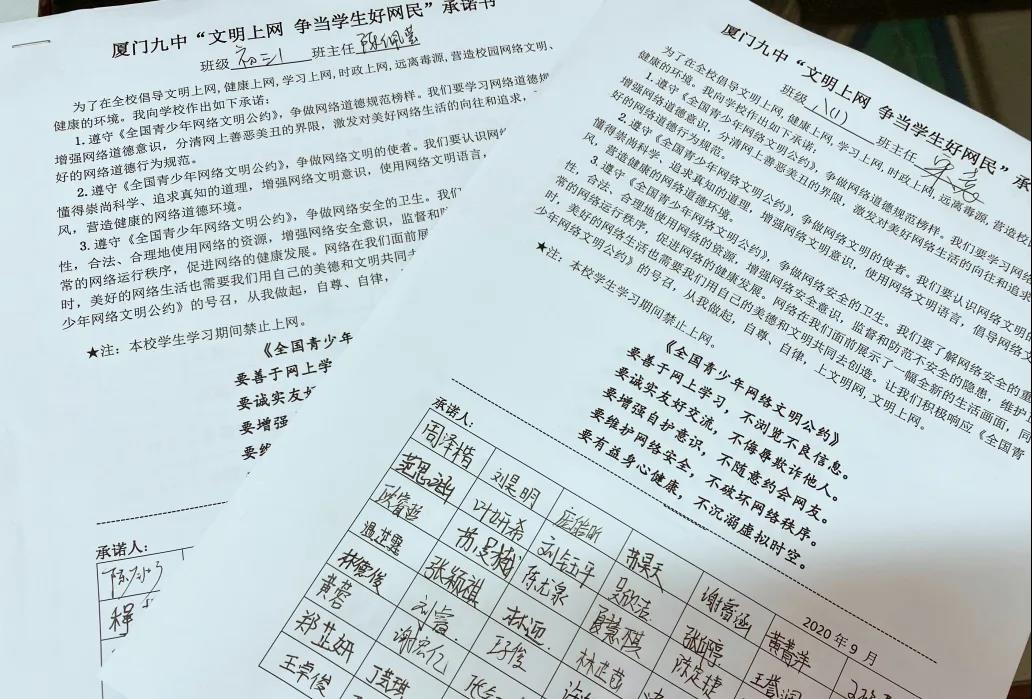 厦门九中“文明上网 争当学生好网民”承诺书
班级 初三1 班主任 陈佩
为了在全校倡导文明上网,健康上网,学习上网,时政上网,远离毒源,营造校园网络文明、
健康的环境。我向学校作出如下承诺:
1.遵守《全国青少年网络文明公约》,争做网络道德规范榜样。我们要学习网络道德规
增强网络道德意识,分清网上善恶美丑的界限,激发对美好网络生活的向往和追求,
好的网络道德行为规范。
2.遵守《全国青少年网络文明公约》,争做网络文明的使者。我们要认识网络
懂得崇尚科学、追求真知的道理,增强网络文明意识,使用网络文明语言,
风,营造健康的网络道德环境。
3.遵守《全国青少年网络文明公约》,争做网络安全的卫生。我们
性,合法、合理地使用网络的资源,增强网络安全意识,监督和防
常的网络运行秩序,促进网络的健康发展。网络在我们面前展
时,美好的网络生活也需要我们用自己的美德和文明共同去
少年网络文明公约》的号召,从我做起,自尊、自律,
★注:本校学生学习期间禁止上网。
《全国青少年
要善于网上学
要诚实友好
要增强
要维
承诺人:
厦门九中“文明上网 争当学生好网民”承
班级 八(1) 班主任
为了在全校倡导文明上网,健康上网,学习上网,时政上网,远离毒源,营造校
健康的环境。我向学校作出如下承诺:
1.遵守《全国青少年网络文明公约》,争做网络道德规范榜样。我们要学习网络
增强网络道德意识,分清网上善恶美丑的界限,激发对美好网络生活的向往和追求
好的网络道德行为规范。
2.遵守《全国青少年网络文明公约》,争做网络文明的使者。我们要认识网络文明的
懂得崇尚科学、追求真知的道理,增强网络文明意识,使用网络文明语言,倡导网络文
风,营造健康的网络道德环境。
3.遵守《全国青少年网络文明公约》,争做网络安全的卫生。我们要了解网络安全的重
性,合法、合理地使用网络的资源,增强网络安全意识,监督和防范不安全的隐患,维护正
常的网络运行秩序,促进网络的健康发展。网络在我们面前展示了一幅全新的生活画面,同
时,美好的网络生活也需要我们用自己的美德和文明共同去创造。让我们积极响应《全国青
少年网络文明公约》的号召,从我做起,自尊、自律,上文明网,文明上网。
★注:本校学生学习期间禁止上网。
《全国青少年网络文明公约》
要善于网上学习,不浏览不良信息。
要诚实友好交流,不侮辱欺诈他人。
要增强自护意识,不随意约会网友。
要维护网络安全,不破坏网络秩序。
要有益身心健康,不沉溺虚拟时空。
承诺人:
2020 年 9 月
周泽楷 刘昊明 苏昊天 谢睿涵 黄青洋
范思涵 叶妍希 刘 平
陈尤泉
张颖祺 林迎
林德俊 刘睿
黄蓉 谢宏亿
郑芷妍
王卓俊